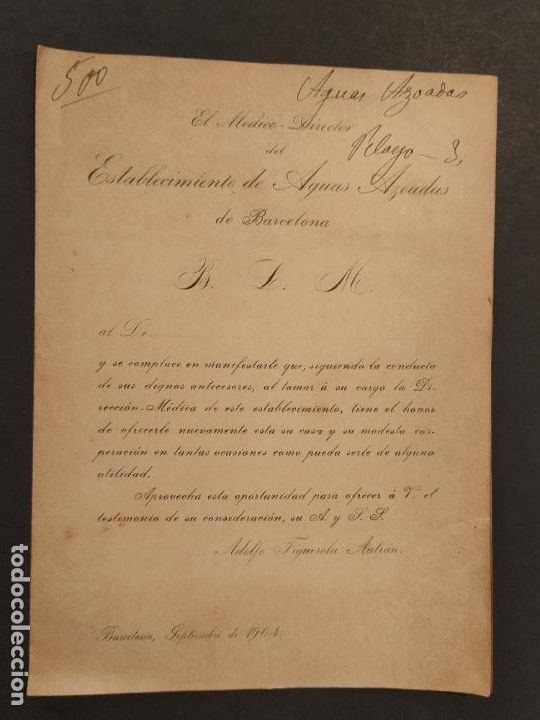 500
Aguas Azoadas
El Médico-Director
del
Pelayo - 3,
Establecimiento de Aguas Azoadas
de Barcelona
B. L. M.
al Dr.
y se complace en manifestarle que, siguiendo la conducta
de sus dignos antecesores, al tomar á su cargo la Di-
rección-Médica de este establecimiento, tiene el honor
de ofrecerle nuevamente esta su casa y su modesta coo-
peración en tantas ocasiones como pueda serle de alguna
utilidad.
Aprovecha esta oportunidad para ofrecer á V. el
testimonio de su consideración, su A. y S. S.
Adolfo Figuerola Autrán.
Barcelona, Septiembre de 1904.
todocoleccion